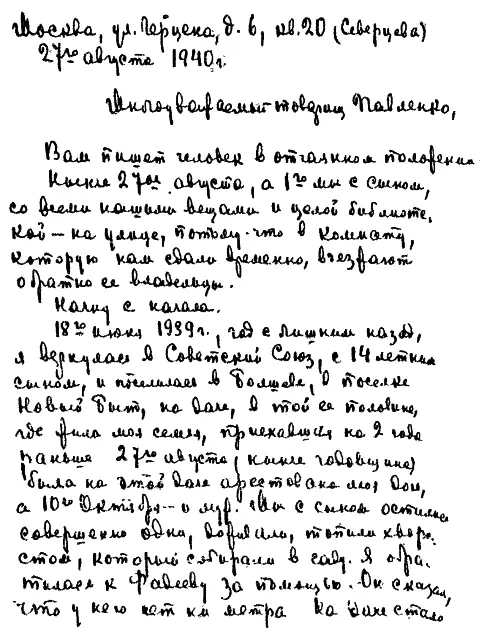 Москва, ул. Герцена, д. 6, кв. 20 (Северцева)
27го августа 1940 г.
Многоуважаемый товарищ Павленко,
Вам пишет человек в отчаянном положении.
Нынче 27ое августа, а 1го мы с сыном,
со всеми нашими вещами и целой библиоте-
кой — на улице, потому что в комнату,
которую нам сдали временно, въезжают
обратно ее владельцы.
Начну с начала.
18го июня 1939 г., год с лишним назад,
я вернулась в Советский Союз, с 14летним
сыном, и поселилась в Болшеве, в поселке
Новый Быт, на даче, в той ее половине,
где жила моя семья, приехавшая на 2 года
раньше. 27го августа (нынче годовщина)
была на этой даче арестована моя дочь,
а 10го Октября — и муж. Мы с сыном остались
совершенно одни, доживали, топили хворо-
стом, который собирали в саду. Я обра-
тилась к Фадееву за помощью. Он сказал,
что у него нет ни метра. На даче стало